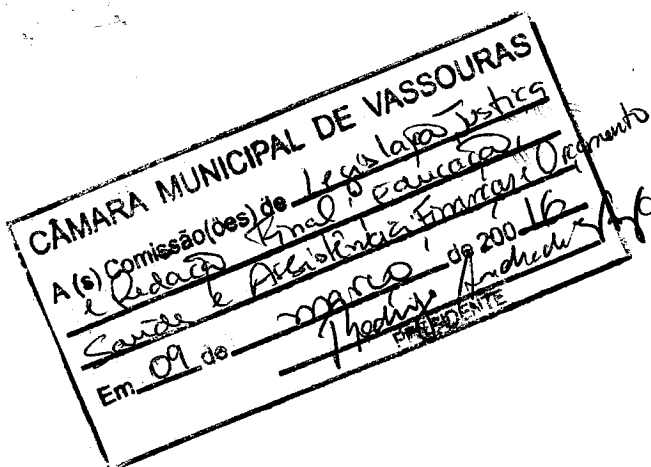 CÂMARA MUNICIPAL DE VASSOURAS
A (s) Comissão(ões) de Legislação Justiça
e Redação Final, Educação,
Saúde e Assistência, Finanças e Orçamento
Em 09 de março de 200 16
PRESIDENTE